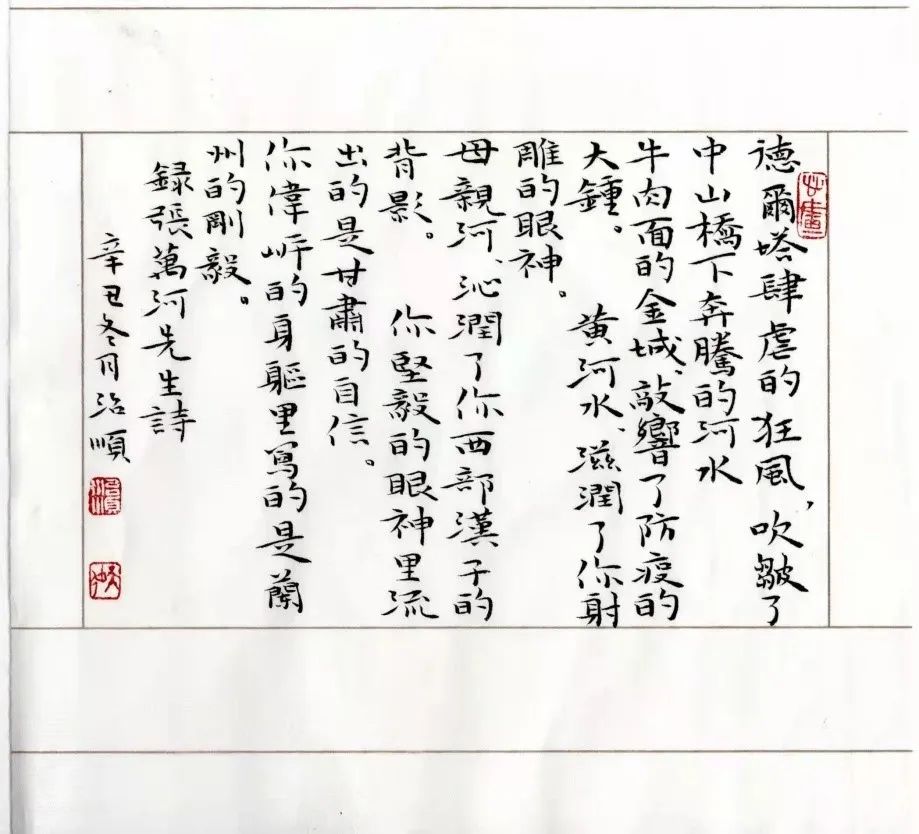 德爾塔肆虐的狂風，吹皺了
中山橋下奔騰的河水
牛肉面的金城、敲響了防疫的
大鍾。　黄河水、滋潤了你射
雕的眼神。
母親河、沁潤了你西部漢子的
背影。　你堅毅的眼神里流
出的是甘肅的自信。
你偉岸的身軀里寫的是蘭
州的剛毅。
録張萬河先生詩
辛丑冬月治順